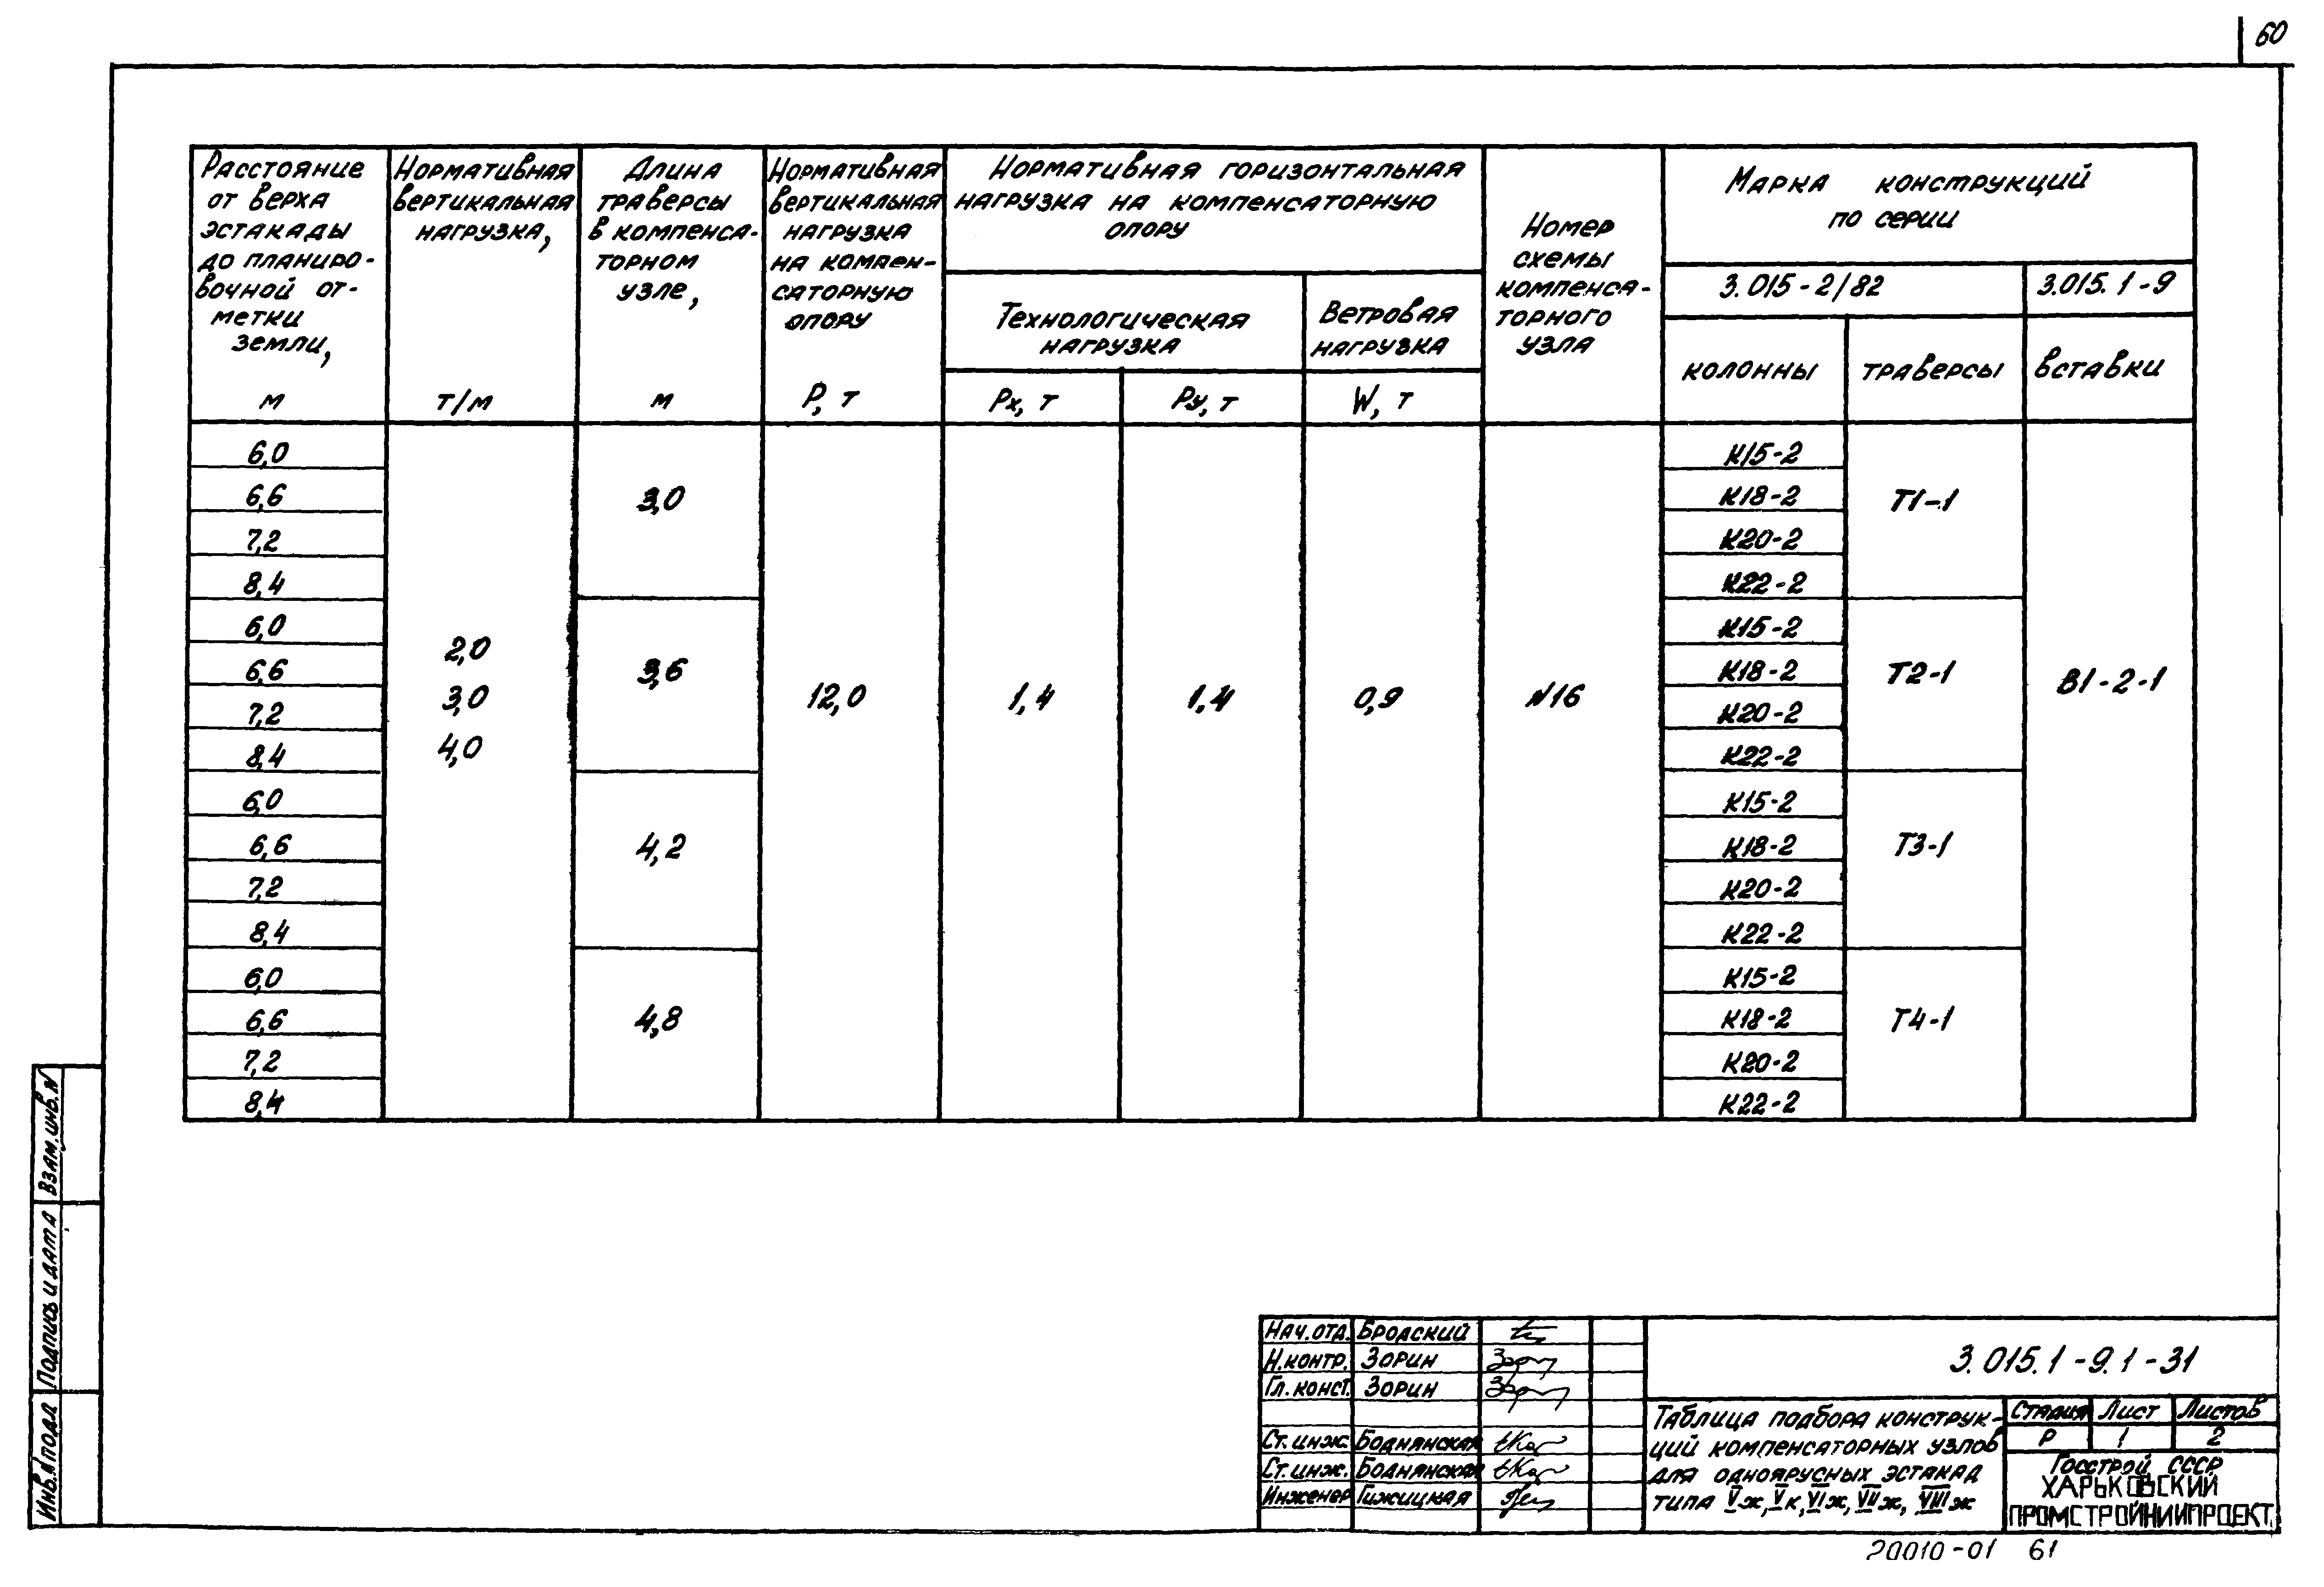 60
Расстояние
от верха
эстакады
до планиро-
вочной от-
метки
земли,
м
Нормативная
вертикальная
нагрузка,
т/м
Длина
траверсы
в компенса-
торном
узле,
м
Нормативная
вертикальная
нагрузка
на компен-
саторную
опору
Р, т
Нормативная горизонтальная
нагрузка на компенсаторную
опору
Технологическая
нагрузка
Рх, т
Ру, т
Ветровая
нагрузка
W, т
Номер
схемы
компенса-
торного
узла
Марка конструкций
по серии
3.015-2/82
3.015.1-9
колонны
траверсы
вставки
6,0
6,6
7,2
8,4
6,0
6,6
7,2
8,4
6,0
6,6
7,2
8,4
6,0
6,6
7,2
8,4
2,0
3,0
4,0
3,0
3,6
4,2
4,8
12,0
1,4
1,4
0,9
N16
К15-2
К18-2
К20-2
К22-2
К15-2
К18-2
К20-2
К22-2
К15-2
К18-2
К20-2
К22-2
К15-2
К18-2
К20-2
К22-2
Т1-1
Т2-1
Т3-1
Т4-1
В1-2-1
Взам.инв.N
Подпись и дата
Инв.N подл
Нач.отд. Бродский
Н.контр. Зорин
Гл.конст. Зорин
Ст.инж. Боднянская
Ст.инж. Боднянская
Инженер Гижицкая
3.015.1-9.1-31
Таблица подбора конструк-
ций компенсаторных узлов
для одноярусных эстакад
типа Vж, Vк, VIж, VIIж, VIIIж
Стадия Лист Листов
Р 1 2
Госстрой СССР
ХАРЬКОВСКИЙ
ПРОМСТРОЙНИИПРОЕКТ
20010-01 61